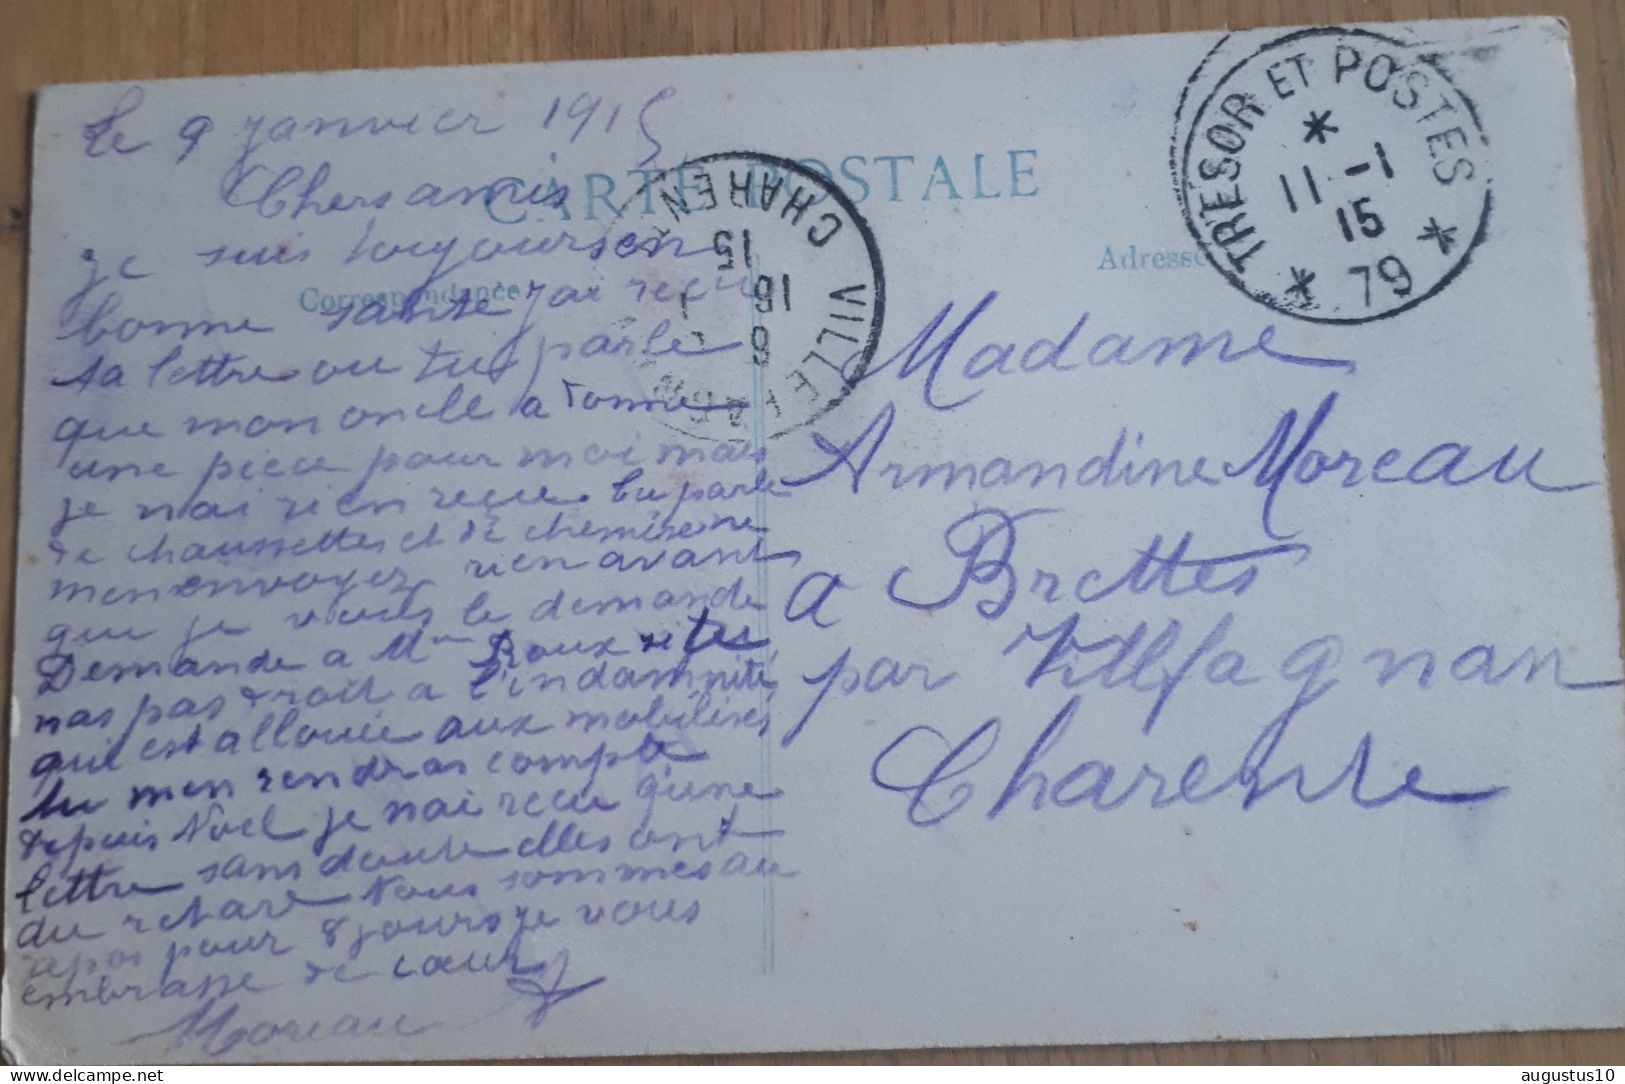 le 9 janvier 1915
Chers amis
CARTE POSTALE
je suis toujours en
Correspondance
bonne santé j'ai reçu
ta lettre ou tu parle
que mon oncle a Donné
une piece pour moi mais
je nai rien reçue. tu parle
de chaussettes et de chemise ne
men envoyez rien avant
que je vous le demande
Demande a Mme Roux si tu
nas pas droit a l'indamnité
qui est allouée aux mobilisés
tu men rendras compte
depuis Noel je nai recu q'une
lettre sans doute elles ont
du retard Nous sommes au
repos pour 8 jours je vous
embrasse de cœur
Moreau
TRESOR ET POSTES
* 11 -1 15 *
* 79 *
CHAREN
VILLEFAGNAN
15
16
6
1
Adresse
Madame
Armandine Moreau
a Brettes
par Villfagnan
Charente
augustus10